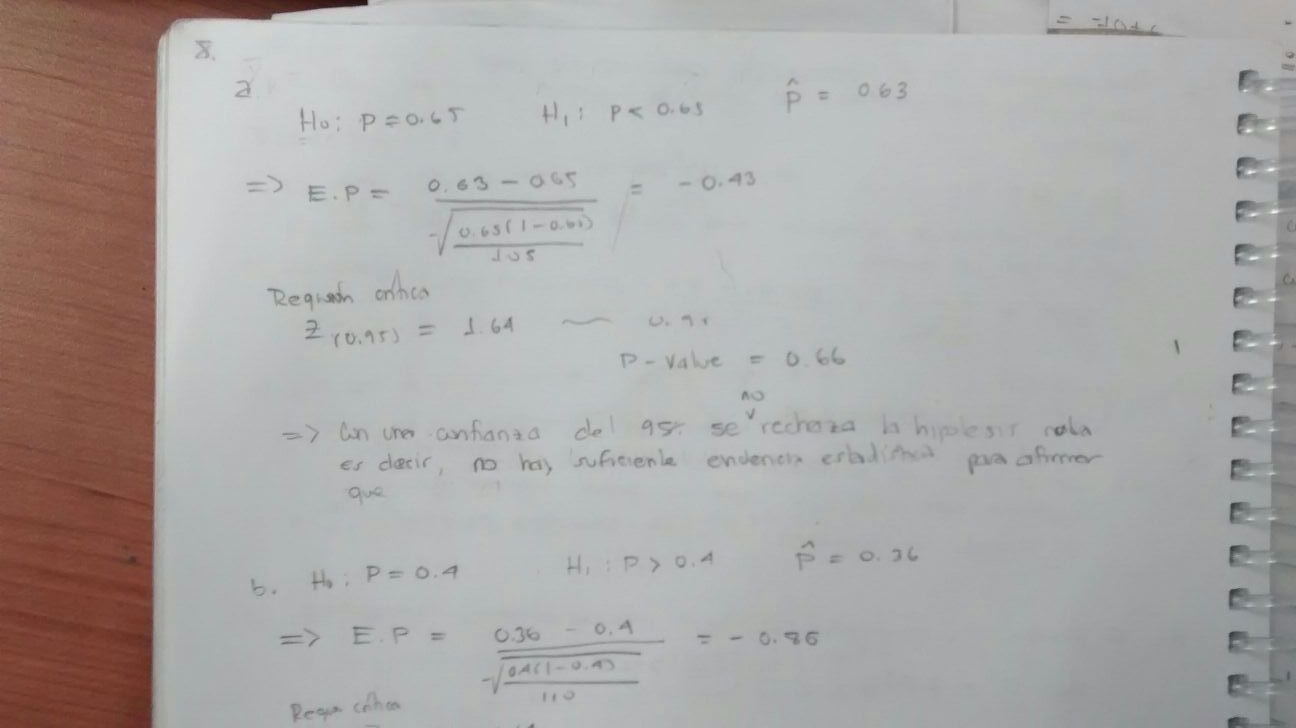 = -10+
8.
a
H₀: P = 0.65 H₁: P < 0.65 p̂ = 0.63
=> E.P = (0.63 - 0.65) / √(0.65(1-0.65)/105) = -0.43
Región crítica
Z(0.95) = 1.64 — 0.95
P-value = 0.66
no
=> Con una confianza del 95% se ˅ rechaza la hipotesis nula
es decir, no hay suficiente evidencia estadística para afirmar
que
b. H₀: P = 0.4 H₁: P > 0.4 p̂ = 0.36
=> E.P = (0.36 - 0.4) / √(0.4(1-0.4)/110) = -0.86
Región crítica